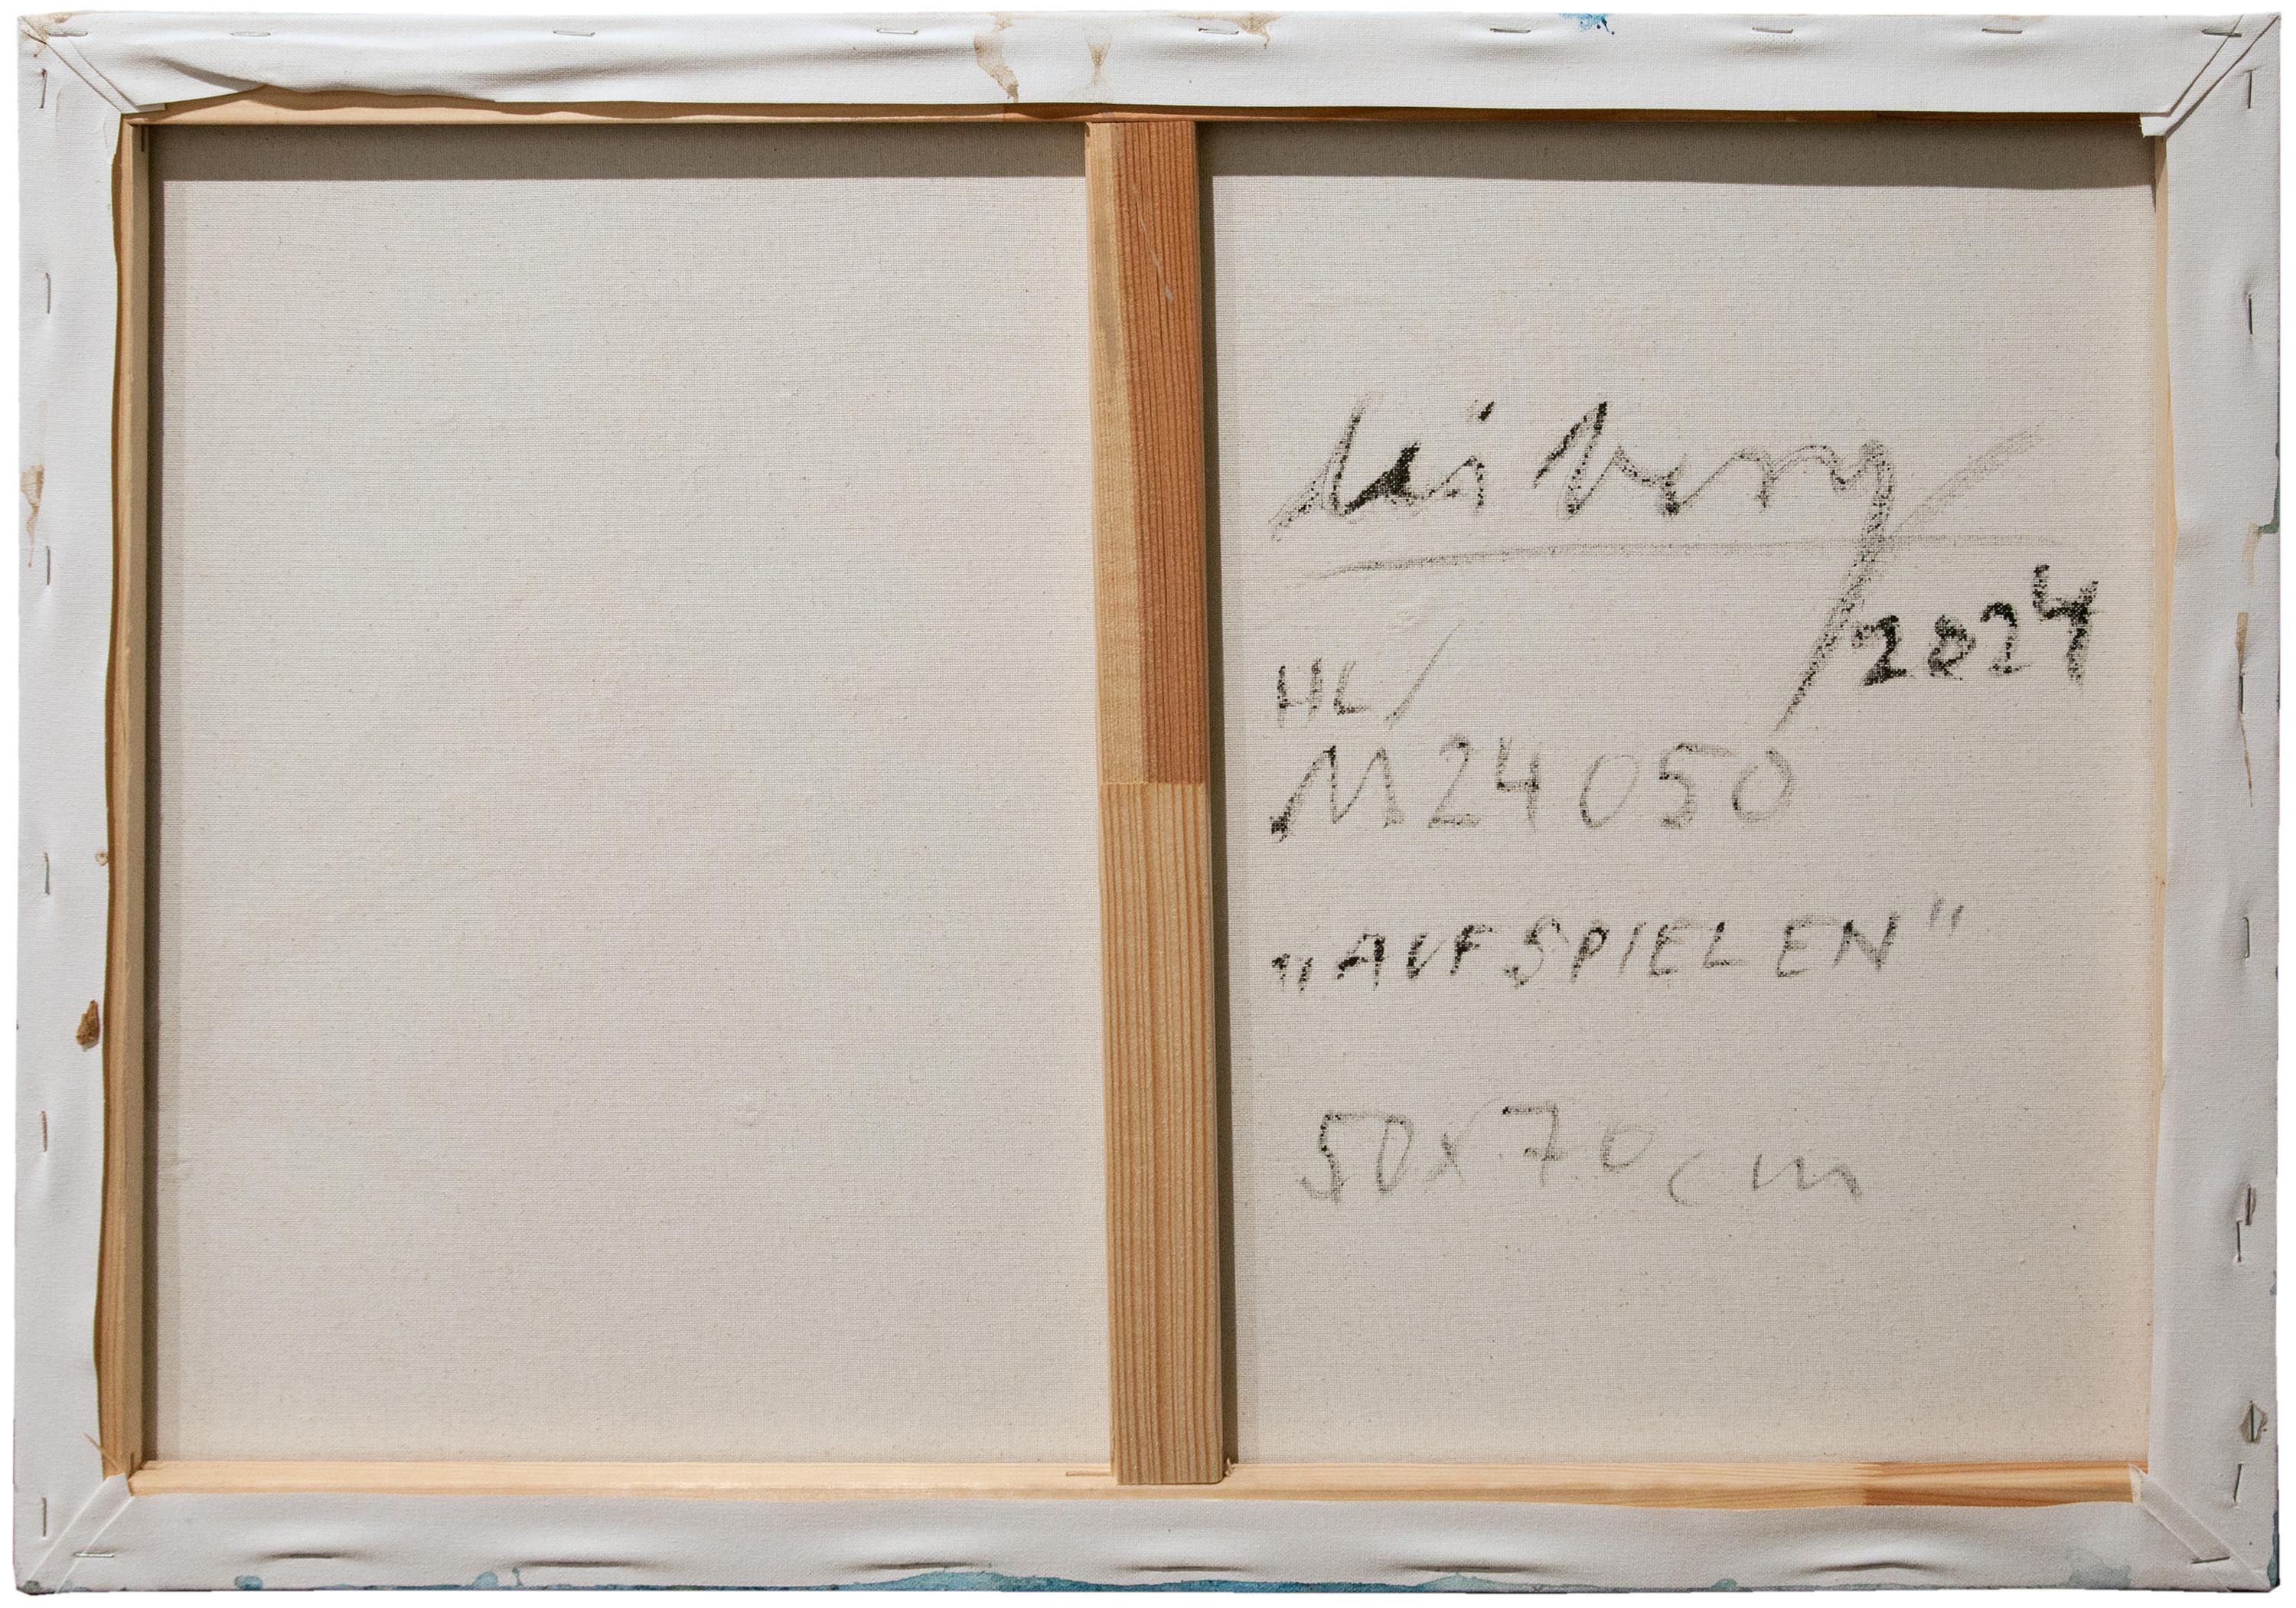 2024
HL/
M24050
„AUFSPIELEN"
50x70cm